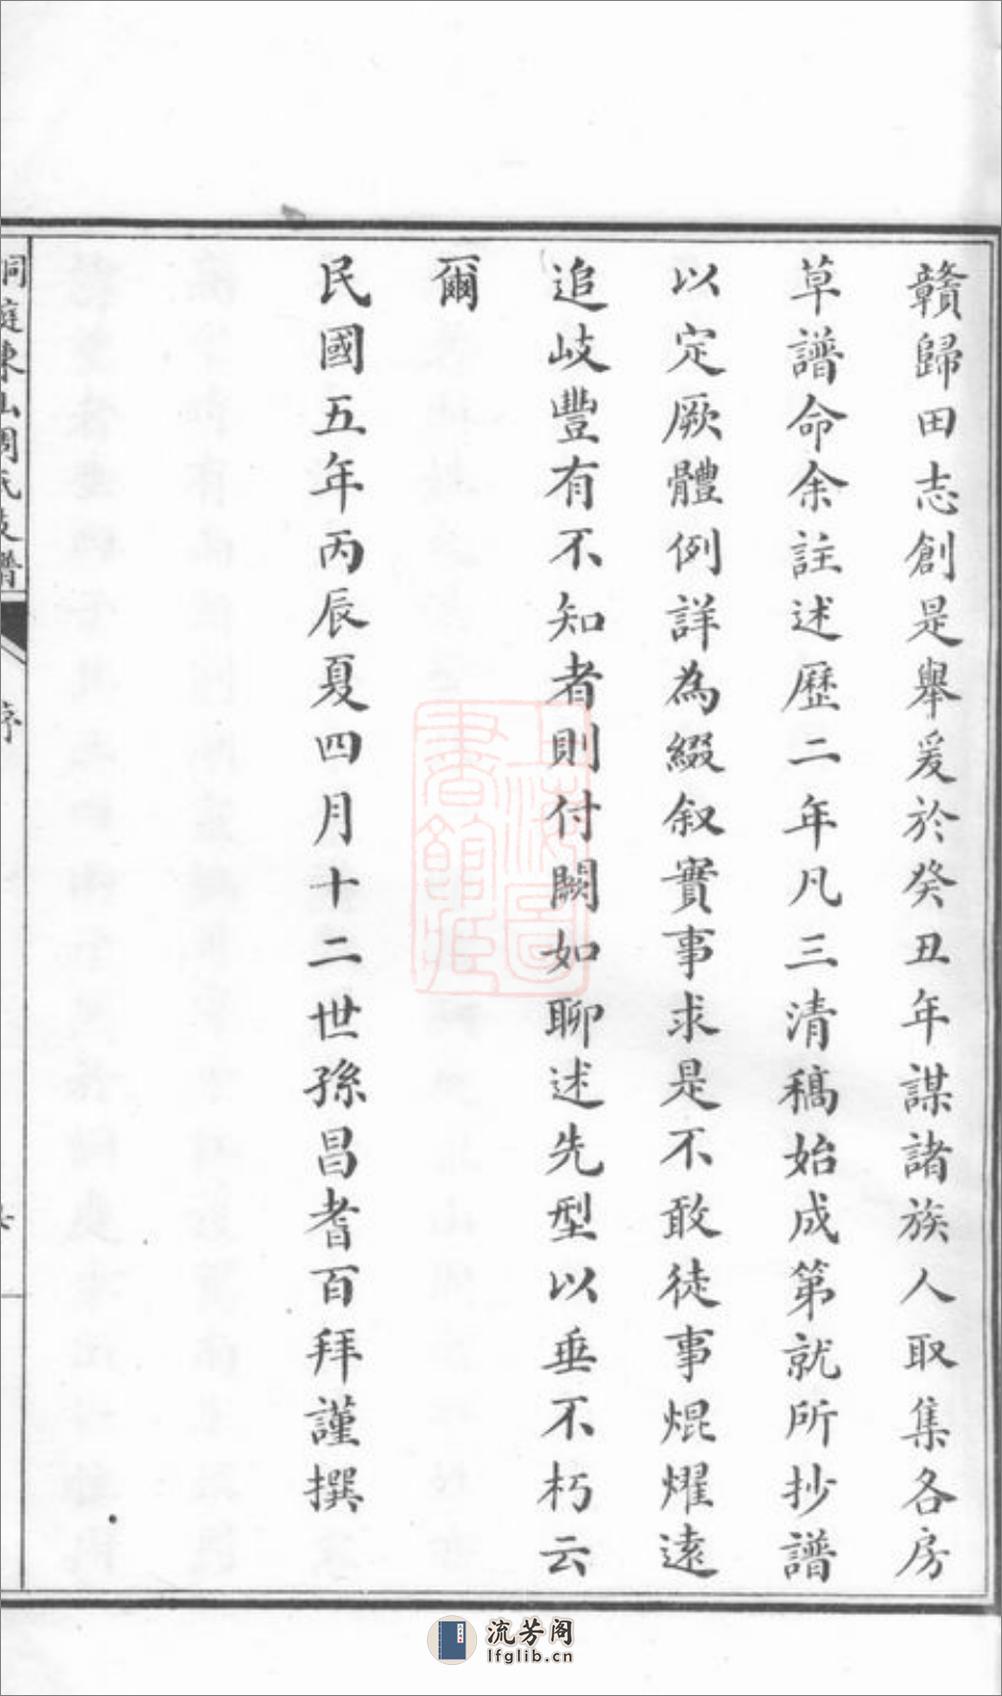 贛歸田志創是舉爰於癸丑年謀諸族人取集各房
草譜命余註述歷二年凡三清稿始成第就所抄譜
以定厥體例詳為綴叙實事求是不敢徒事焜燿遠
追岐豐有不知者則付闕如聊述先型以垂不朽云
爾
民國五年丙辰夏四月十二世孫昌耆百拜謹撰
洞庭東山周氏支譜
序
上海圖
書館藏
流芳阁
lfglib.cn